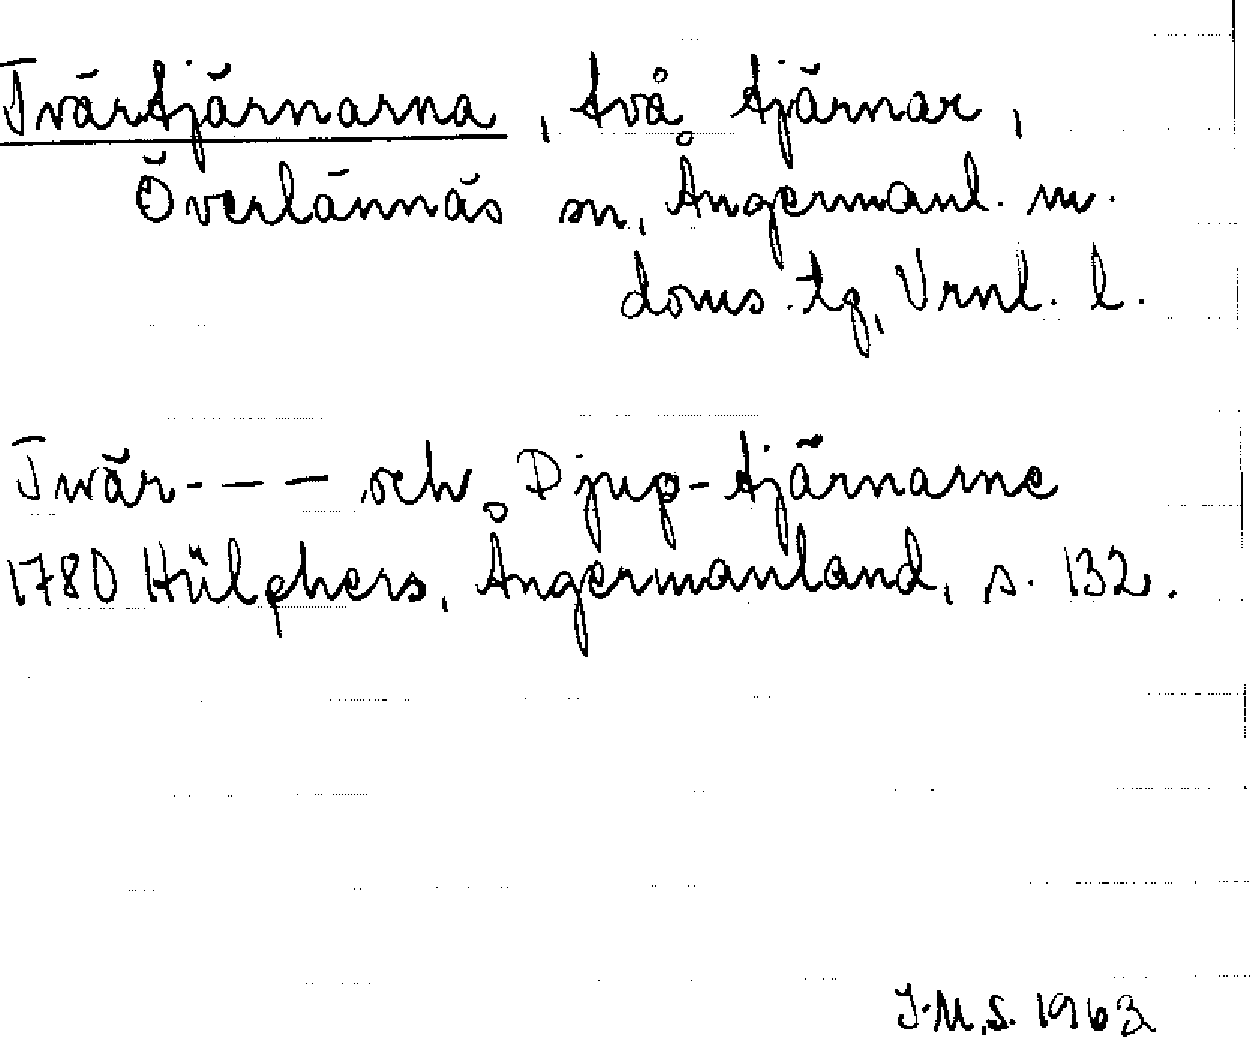 Tvärtjärnarna, två tjärnar,
Överlännäs sn, Ångermanl. m.
doms.tg, Vrnl. l.
Twär--- och Djup-tjärnarne
1780 Hülphers, Ångermanland, s. 132.
J.M.S. 1963